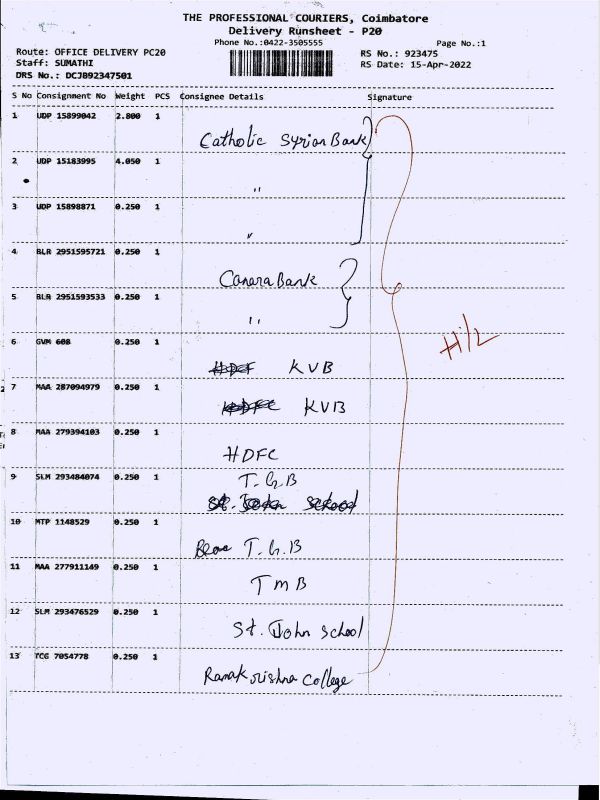 THE PROFESSIONAL COURIERS, Coimbatore
Delivery Runsheet - P20
Phone No.:0422-3505555 Page No.:1
Route: OFFICE DELIVERY PC20 RS No.: 923475
Staff: SUMATHI RS Date: 15-Apr-2022
DRS No.: DCJB92347501
S No Consignment No Weight PCS Consignee Details Signature
1 UDP 15899042 2.800 1
Catholic Syrian Bank
2 UDP 15183995 4.050 1
"
3 UDP 15898871 0.250 1
"
4 BLR 2951595721 0.250 1
Canara Bank
5 BLR 2951593533 0.250 1
"
6 GVM 608 0.250 1
HDF KVB
7 MAA 287094979 0.250 1
HDFC KVB
8 MAA 279394103 0.250 1
HDFC
9 SLM 293484074 0.250 1
T.G.B
St. John School
10 MTP 1148529 0.250 1
T.G.B
11 MAA 277911149 0.250 1
TMB
12 SLM 293476529 0.250 1
St. John School
13 TCG 7054778 0.250 1
Ramakrishna College